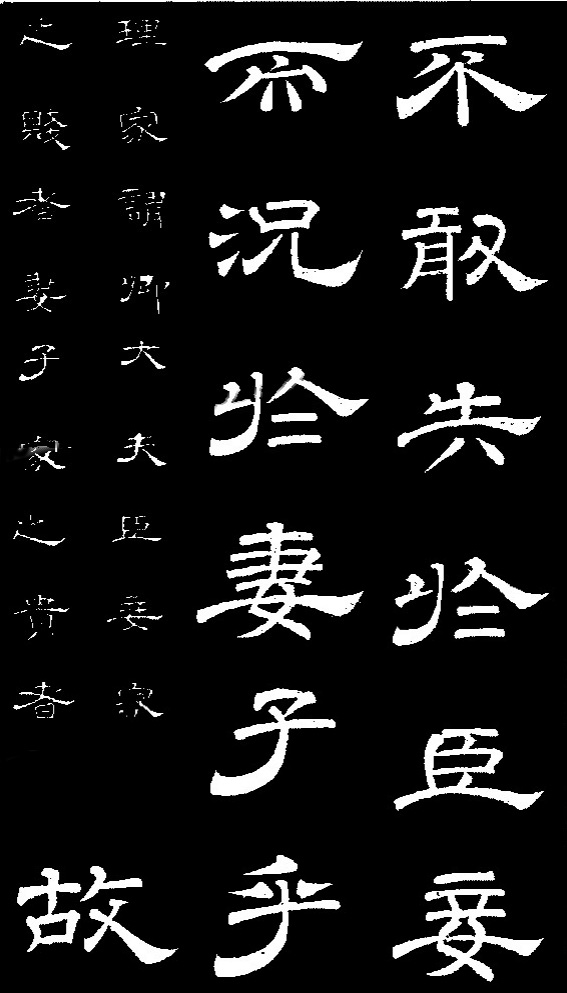 不敢失於臣妾
而況於妻子乎
理家謂卿大夫臣妾家
之賤者妻子家之貴者
故